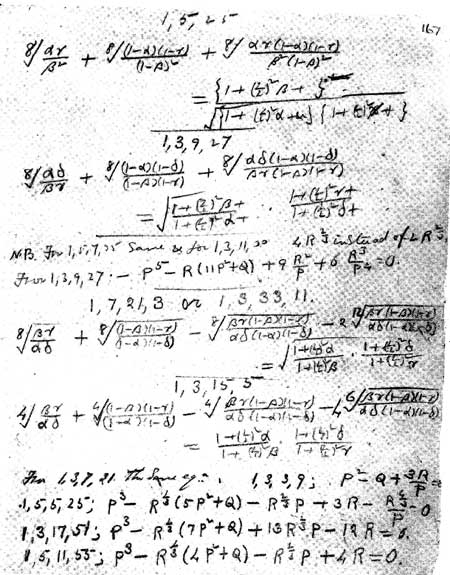 167
1, 5, 25
⁸√(αγ/β²) + ⁸√((1-α)(1-γ)/(1-β)²) + ⁸√(αγ(1-α)(1-γ)/β²(1-β)²)
= {1 + (½)²β + } / √{1 + (½)²α + &}{1 + (½)²γ + }
1, 3, 9, 27
⁸√(αδ/βγ) + ⁸√((1-α)(1-δ)/(1-β)(1-γ)) + ⁸√(αδ(1-α)(1-δ)/βγ(1-β)(1-γ))
= √((1+(½)²β+ / 1+(½)²α+) · (1+(½)²γ+ / 1+(½)²δ+))
N.B. For 1, 5, 7, 35 Same as for 1, 3, 11, 4R^⅔ instead of 4R^⅓.
For 1, 3, 9, 27 :- P⁵ - R(11P²+Q) + 9 R²/P + 6 R³/P⁴ = 0.
1, 7, 21, 3 or 1, 3, 33, 11.
⁸√(βγ/αδ) + ⁸√((1-β)(1-γ)/(1-α)(1-δ)) - ⁸√(βγ(1-β)(1-γ)/αδ(1-α)(1-δ)) - 2 ¹²√(βγ(1-β)(1-γ)/αδ(1-α)(1-δ))
= √((1+(½)²α / 1+(½)²β) · (1+(½)²δ / 1+(½)²γ))
1, 3, 15, 5
⁴√(βγ/αδ) + ⁴√((1-β)(1-γ)/(1-α)(1-δ)) - ⁴√(βγ(1-β)(1-γ)/αδ(1-α)(1-δ)) - 4 ⁶√(βγ(1-β)(1-γ)/αδ(1-α)(1-δ))
= (1+(½)²α / 1+(½)²β) · (1+(½)²δ / 1+(½)²γ)
For 1, 3, 7, 21. The Same eqn. : 1, 3, 3, 9 ; P² - Q + 3R/P =
1, 5, 5, 25 ; P³ - R^⅓(5P²+Q) - R^⅔P + 3R - R^(4/3)/P = 0
1, 3, 17, 51 ; P³ - R^⅓(7P²+Q) + 13R^⅔P - 12R = 0.
1, 5, 11, 55 ; P³ - R^⅓(4P²+Q) - R^⅔P + 4R = 0.